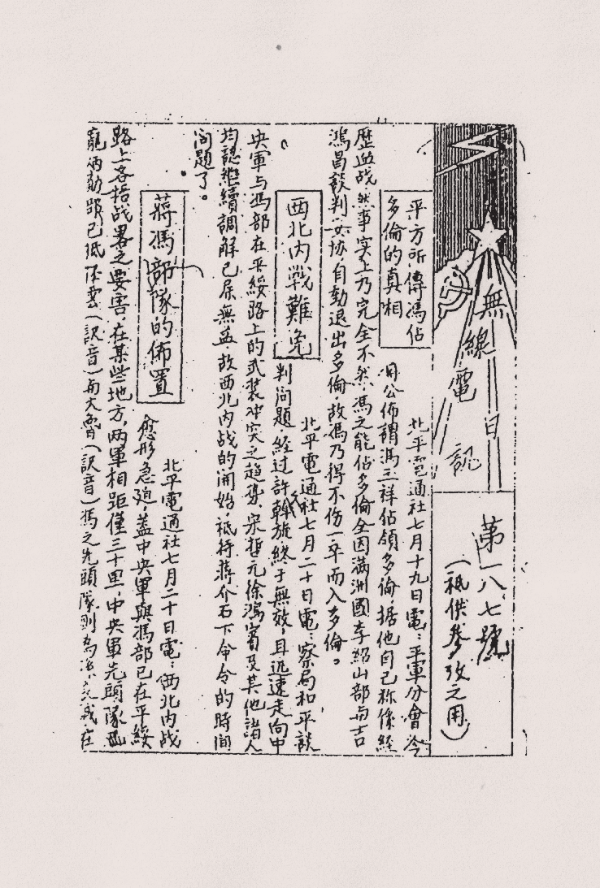 無線電日訊
第一八七號
(祇供參攷之用)
平方所傳馮佔
多倫的真相
北平電通社七月十九日電：平軍分會今
用公佈謂馮玉祥佔領多倫，據他自己称係經
歷血战，然事实上乃完全不然，馮之能佔多倫全因滿洲國李紹山部与吉
鴻昌談判妥协自動退出多倫，故馮乃得不伤一卒而入多倫。
西北內戰難免
北平電通社七月二十日電：察局和平談
判问題，經过許斡旋，終于無效，且迅速走向中
央軍与馮部在平綏路上的武装冲突之趋势，宋哲元徐鴻賓及其他諸人
均認継續調解已屬無益，故西北內战的開始，祇待蒋介石下命令的時間
问題了。
蔣馮部隊的佈置
北平電通社七月二十日電：西北內战
愈形急迫，蓋中央軍與馮部已在平綏
路上各据战畧之要害，在某些地方，两軍相距僅三十里，中央軍先頭隊
龐炳勛部已抵 (訳音)与大 (訳音)馮之先頭隊則為 在